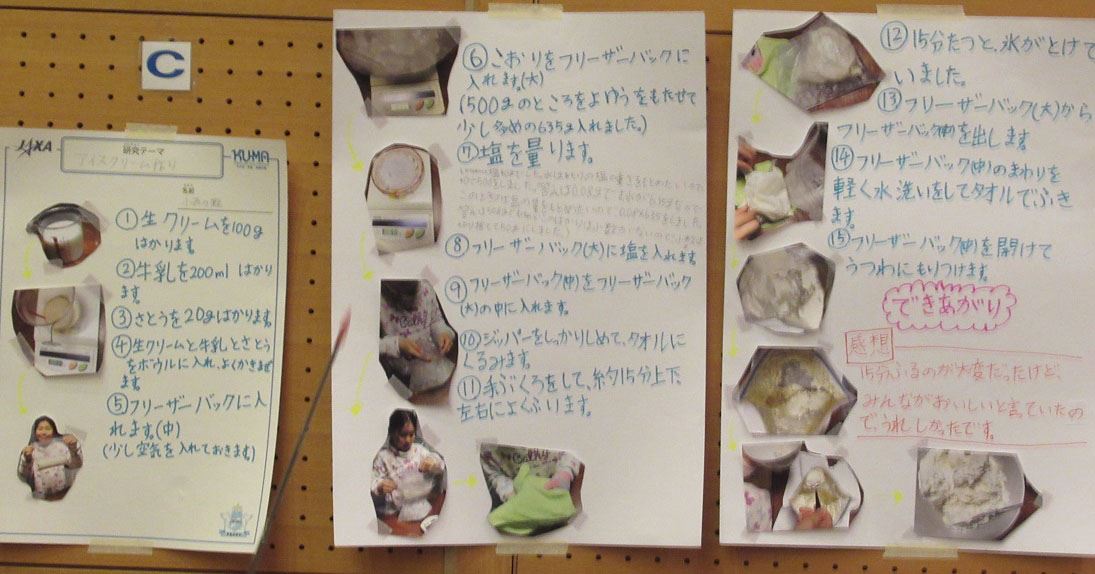 C
JAXA
研究テーマ
KUMA
アイスクリーム作り
名前
①生クリームを100g
はかります
②牛乳を200ml はかり
ます。
③さとうを20gはかります。
④生クリームと牛乳とさとう
をボウルに入れ、よくかきまぜ
ます
⑤フリーザーバックに入
れます。(中)
(少し空気を入れておきます)
⑥こおりをフリーザーバックに
入れます。(大)
(500gのところをよゆうをもたせて
少し多めの635g入れました。)
⑦塩を量ります。
⑧フリーザーバック(大)に塩を入れます
⑨フリーザーバック(中)をフリーザーバック
(大)の中に入れます。
⑩ジッパーをしっかりしめて、タオルに
くるみます。
⑪手ぶくろをして、約15分上下、
左右によくふります。
⑫15分たつと、氷がとけて
いました。
⑬フリーザーバック(大)から
フリーザーバック(中)を出します
⑭フリーザーバック(中)のまわりを
軽く水洗いをしてタオルでふき
ます。
⑮フリーザーバック(中)を開けて
うつわにもりつけます。
できあがり
感想
15分ふるのが大変だったけど、
みんながおいしいと言っていたの
で、うれしかったです。